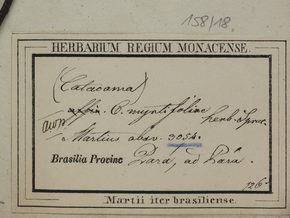 158/18.
HERBARIUM REGIUM MONACENSE.
(Catacoma)
affin. P. myrtifoliae herb.
Martius obsv. 3054.
Brasilia Provinc Para, ad Pará.
Martii iter brasiliense.